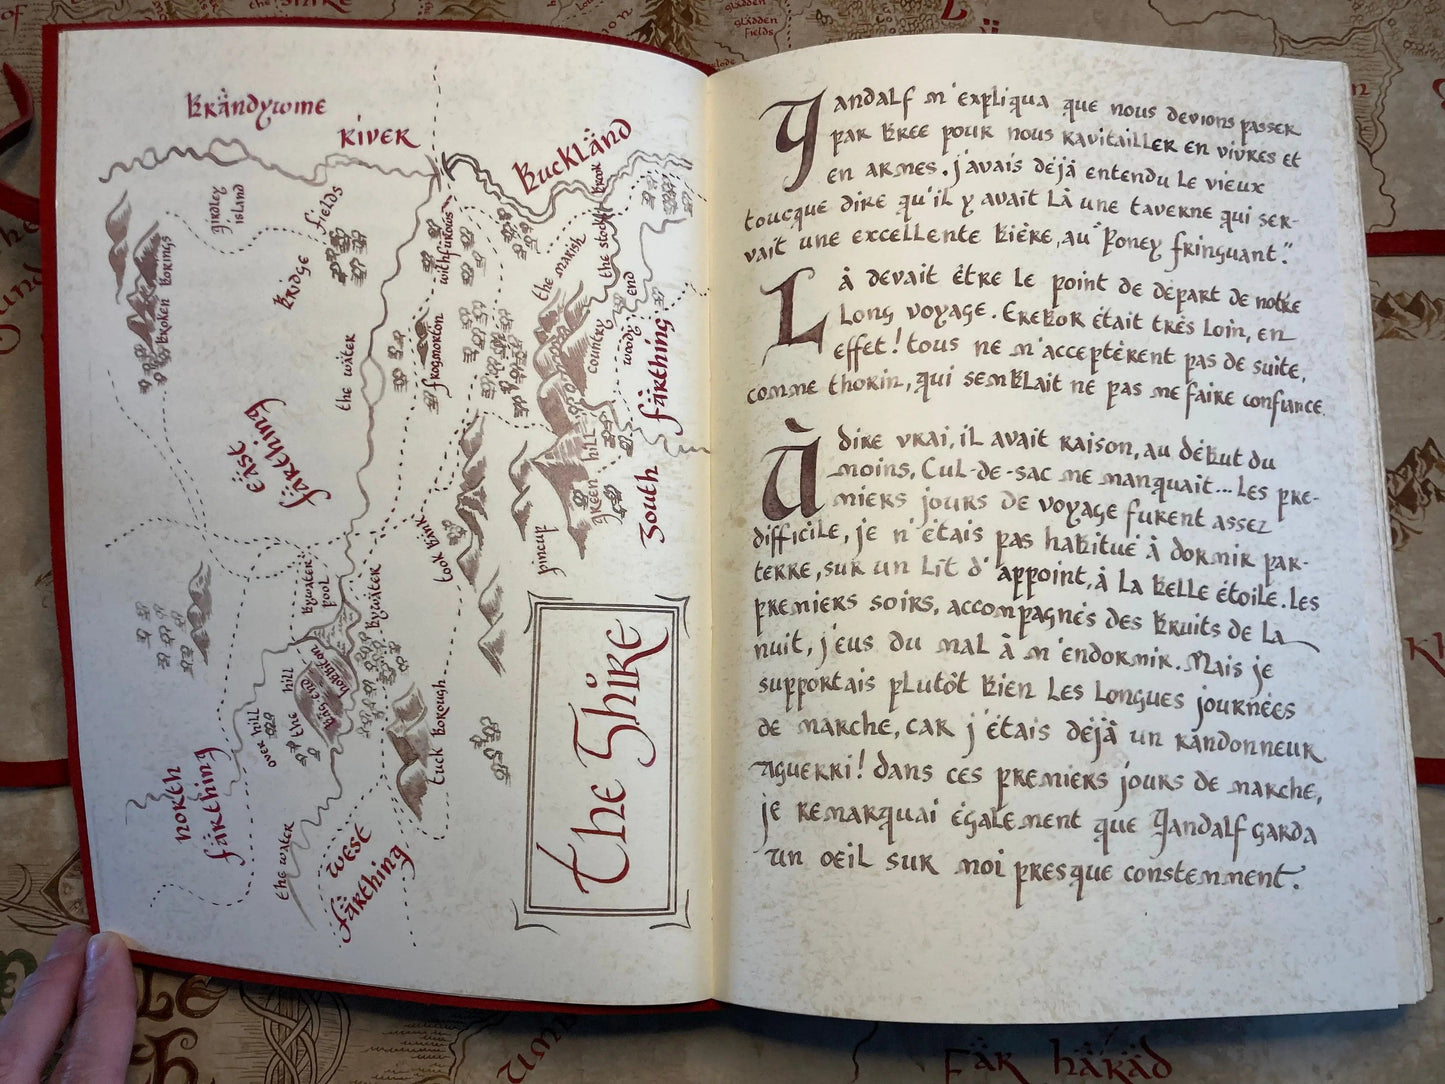 Brandywine
River
Buckland
Girdley
Island
Bridge
Fields
Broken Borings
Whitfurrows
the Marish
the Stock
Brook
Woody
End
the Water
Frogmorton
Country
South
Farthing
Green Hill
Pincup
East
Farthing
Took Bank
Bywater
Pool
Bywater
the
Hill
Bag-End
Hobbiton
Over Hill
Tuck Borough
North
Farthing
the Water
West
Farthing
The Shire
Gandalf m'expliqua que nous devions passer
par Bree pour nous ravitailler en vivres et
en armes. J'avais déjà entendu le vieux
Toucque dire qu'il y avait là une taverne qui ser-
vait une excellente bière, au "Poney Fringuant".
Là devait être le point de départ de notre
long voyage. Erebor était très loin, en
effet! Tous ne m'acceptèrent pas de suite,
comme Thorin, qui semblait ne pas me faire confiance.
À dire vrai, il avait raison, au début du
moins, Cul-de-Sac me manquait... Les pre-
miers jours de voyage furent assez
difficile, je n'étais pas habitué à dormir par-
terre, sur un lit d'appoint, à la belle étoile. Les
premiers soirs, accompagnés des bruits de la
nuit, j'eus du mal à m'endormir. Mais je
supportais plutôt bien les longues journées
de marche, car j'étais déjà un randonneur
aguerri! Dans ces premiers jours de marche,
je remarquai également que Gandalf garda
un oeil sur moi presque constemment.
Gladden
Fields
Far Harad